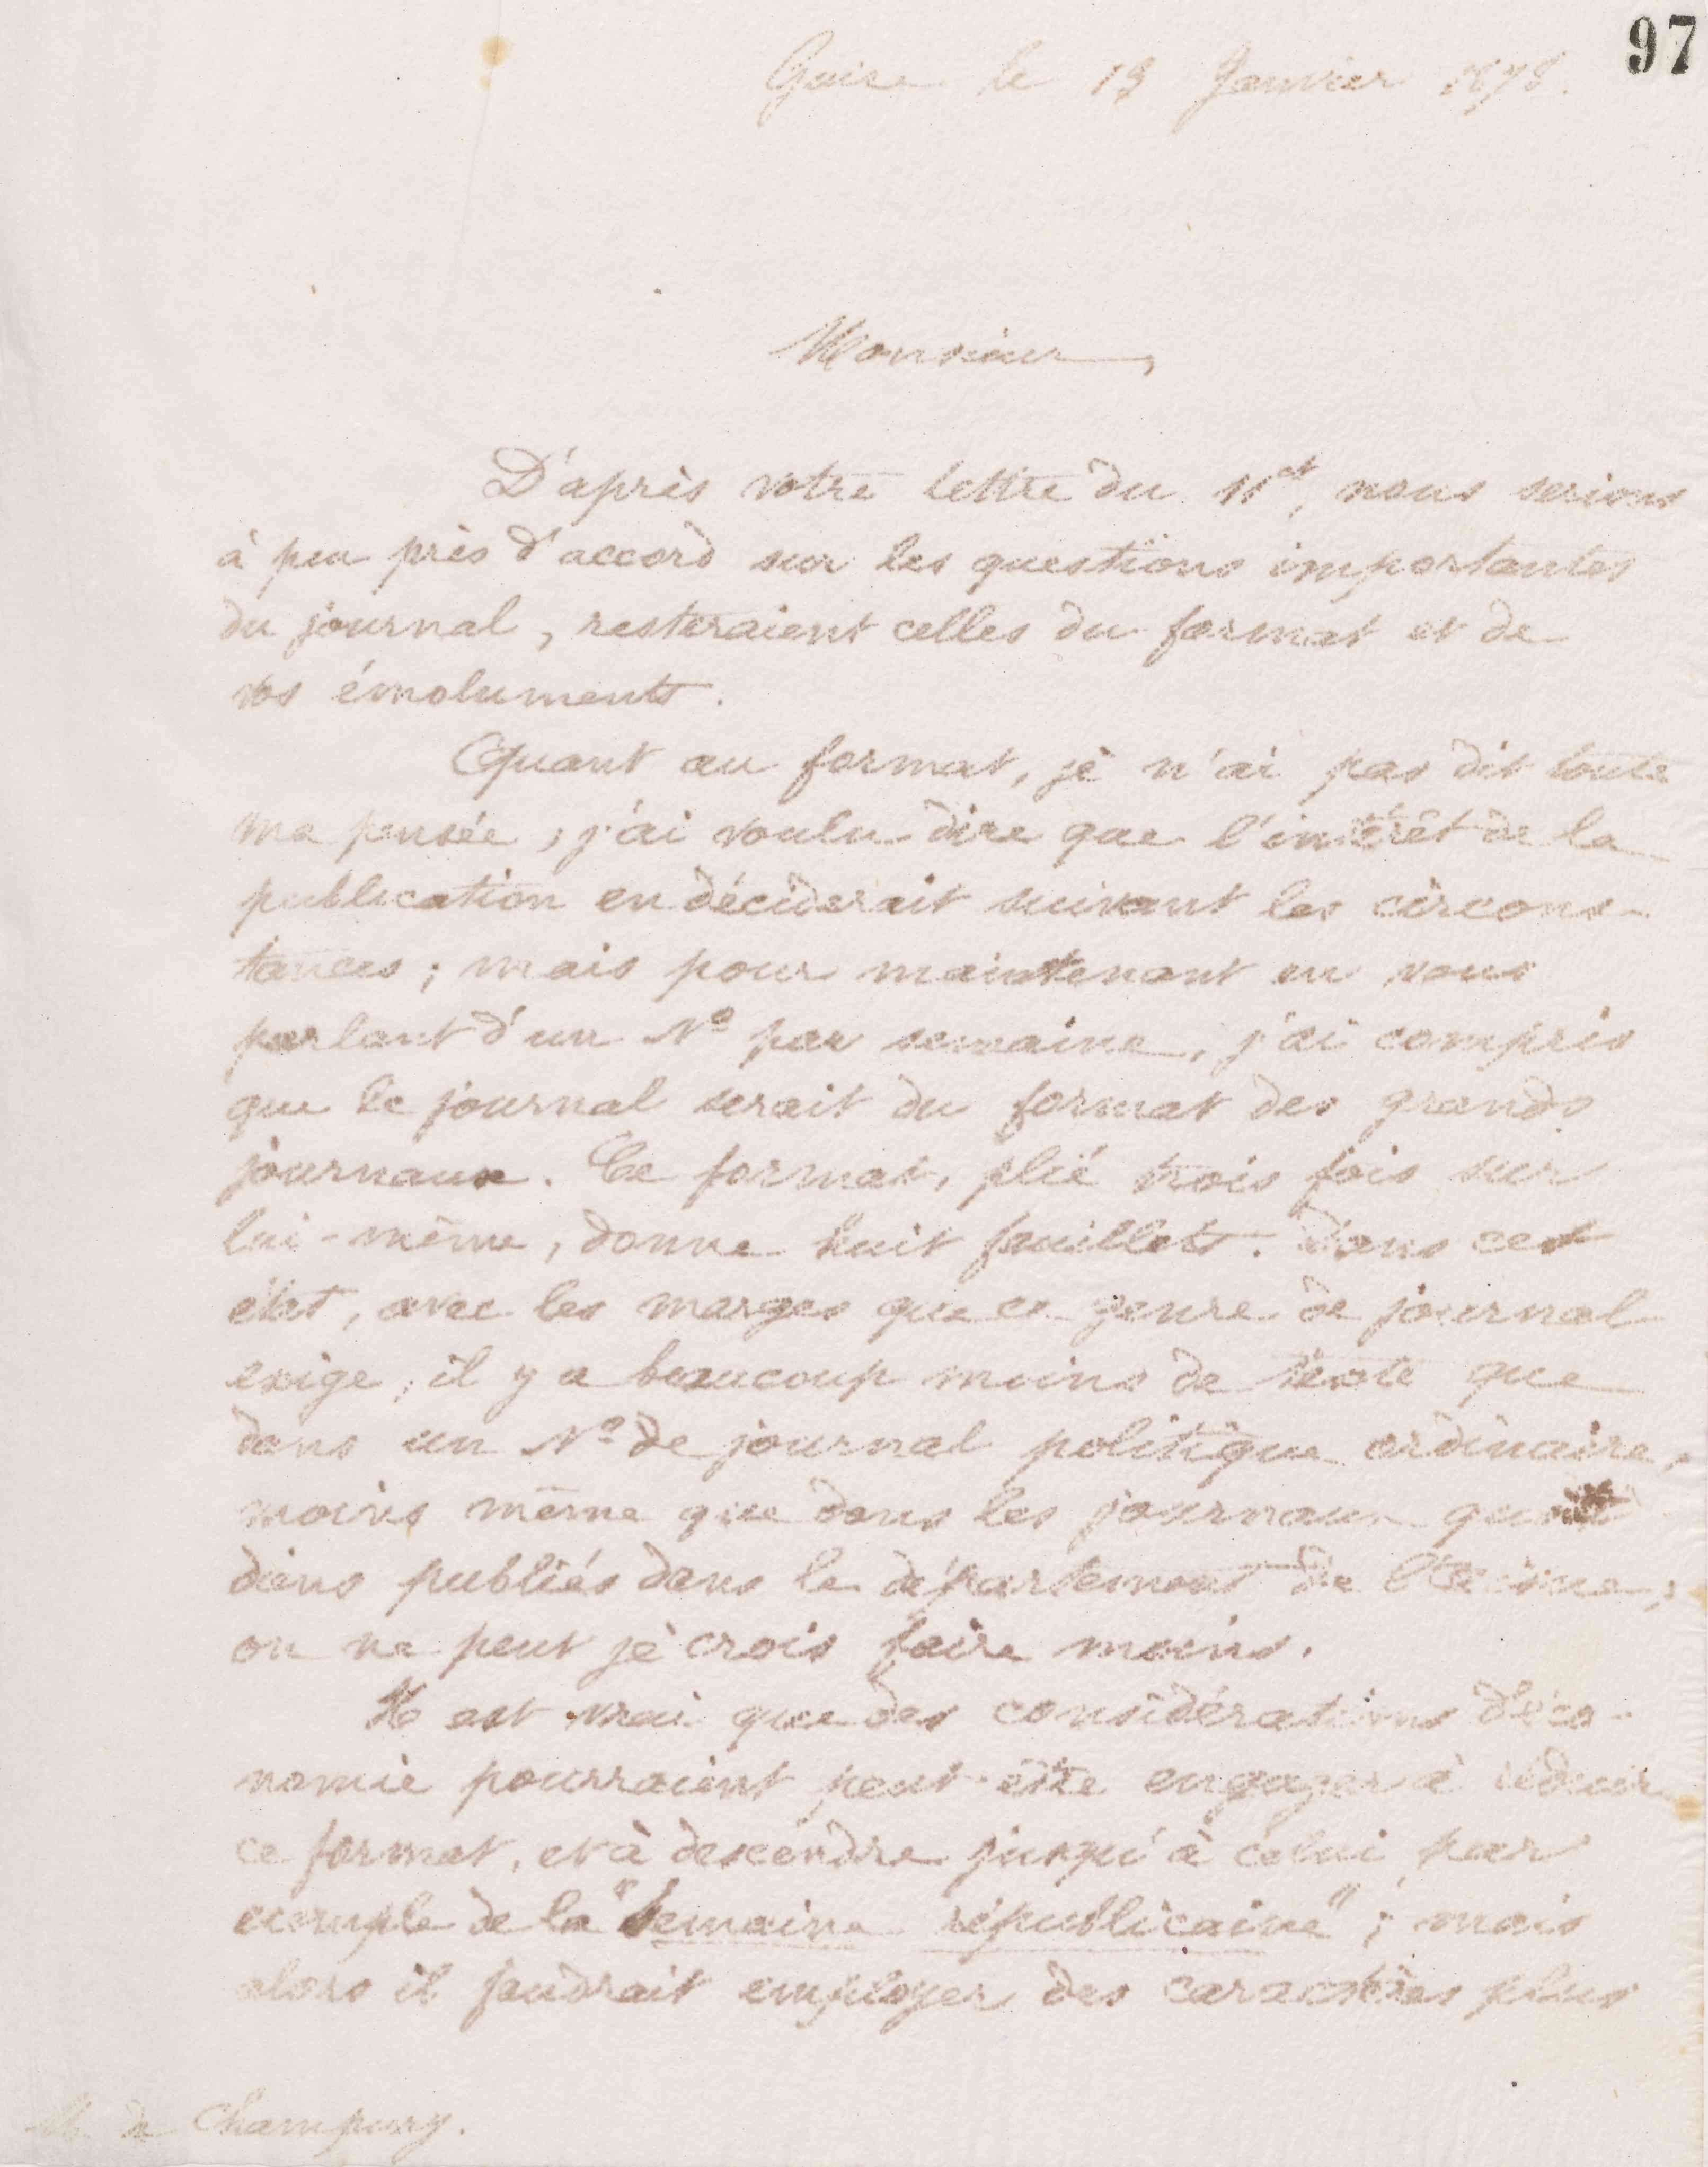 97
Guise le 13 Janvier 1878.
Monsieur,
D'après votre lettre du 11 ct, nous serions
à peu près d'accord sur les questions importantes
du journal, resteraient celles du format et de
vos émoluments.
Quant au format, je n'ai pas dit toute
ma pensée ; j'ai voulu dire que l'intérêt de la
publication en déciderait suivant les circons-
tances ; mais pour maintenant en vous
parlant d'un Nº par semaine, j'ai compris
que le journal serait du format des grands
journaux. Ce format, plié trois fois sur
lui-même, donne huit feuillets. Dans cet
état, avec les marges que ce genre de journal
exige, il y a beaucoup moins de texte que
dans un Nº de journal politique ordinaire,
moins même que dans les journaux quoti
diens publiés dans le département de l'Aisne ;
on ne peut je crois faire moins.
Il est vrai que des considérations d'éco-
nomie pourraient peut-être engager à réduire
ce format, et à descendre jusqu'à celui par
exemple de la "Semaine républicaine" ; mais
alors il faudrait employer des caractères plus
M. de Champury.